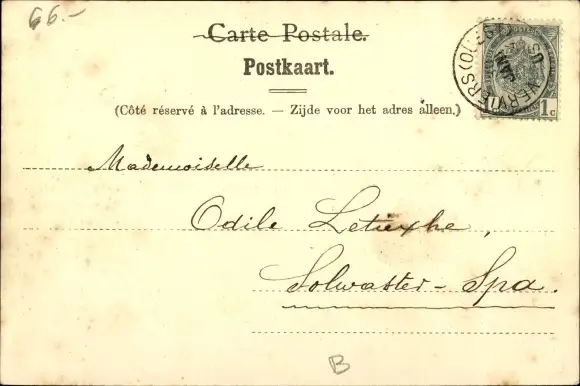 66.-
Carte Postale.
Postkaart.
(Côté réservé à l'adresse. — Zijde voor het adres alleen.)
VERVIERS (OUEST)
JANV
1 c
Mademoiselle
Odile Letiexhe,
Solwaster - Spa.
B